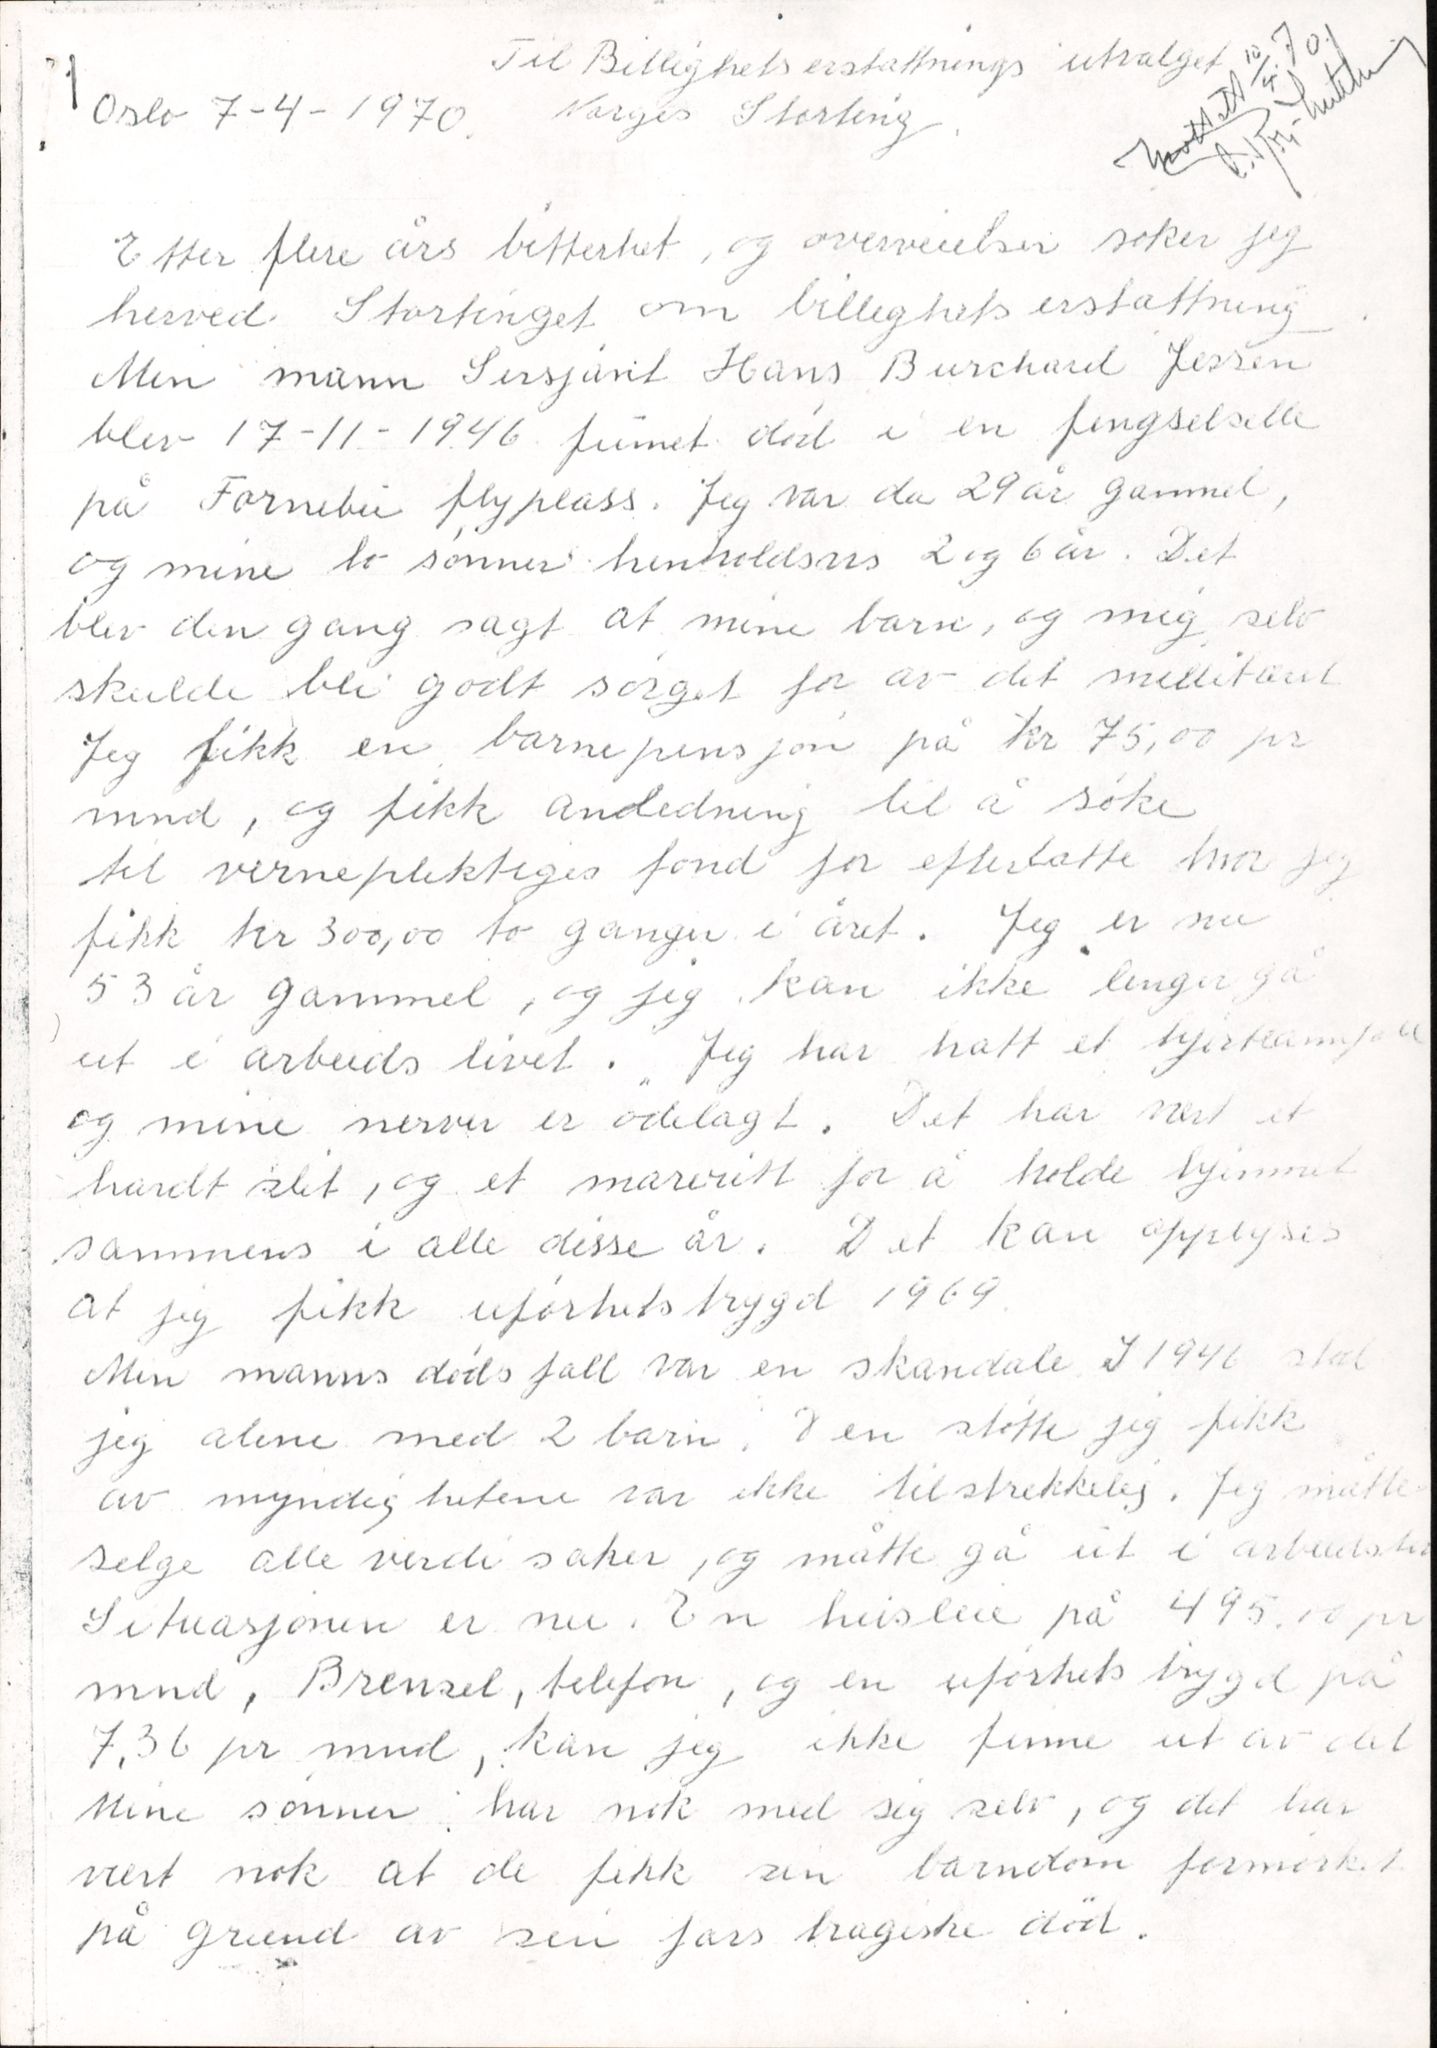 1
Til Billighetserstattnings utvalget
Oslo 7-4-1970. Norges Storting.
Mottatt 10/4.70.
Etter flere års bitterhet, og overveielser søker jeg
herved Stortinget om billeghets erstattning.
Min mann Sersjant Hans Burchard Jessen
blev 17-11-1946 funnet död i en fengselselle
på Fornebu flyplass. Jeg var da 29 år gammel,
og mine to sönner henholdsvis 2 og 6 år. Det
blev den gang sagt at mine barn, og mig selv
skulde bli godt sörget for av det millitære
Jeg fikk en barnepensjon på kr 75,00 pr
mnd, og fikk andledning til å söke
til verneplektiges fond for efterlatte hvor jeg
fikk kr 300,00 to ganger i året. Jeg er nu
53 år gammel, og jeg kan ikke lenger gå
ut i arbeids livet. Jeg har hatt et hjerteannfall
og mine nerver er ödelagt. Det har vært et
hardt slit, og et mareritt for å holde hjemmet
sammens i alle disse år. Det kan opplyses
at jeg fikk uförhetstrygd 1969.
Min manns döds fall var en skandale. I 1946 stod
jeg alene med 2 barn. Den stötte jeg fikk
av myndighetene var ikke tilstrekkelig. Jeg måtte
selge alle verdi saker, og måtte gå ut i
Situasjonen er nu. En husleie på 495.10 pr
mnd, Brensel, telefon, og en uförhets trygd på
7,36 pr mnd, kan jeg ikke finne ut av det
Mine sönner har nok med sig selv, og det har
vært nok at de fikk sin barndom formörket
på grund av sin fars tragiske död.